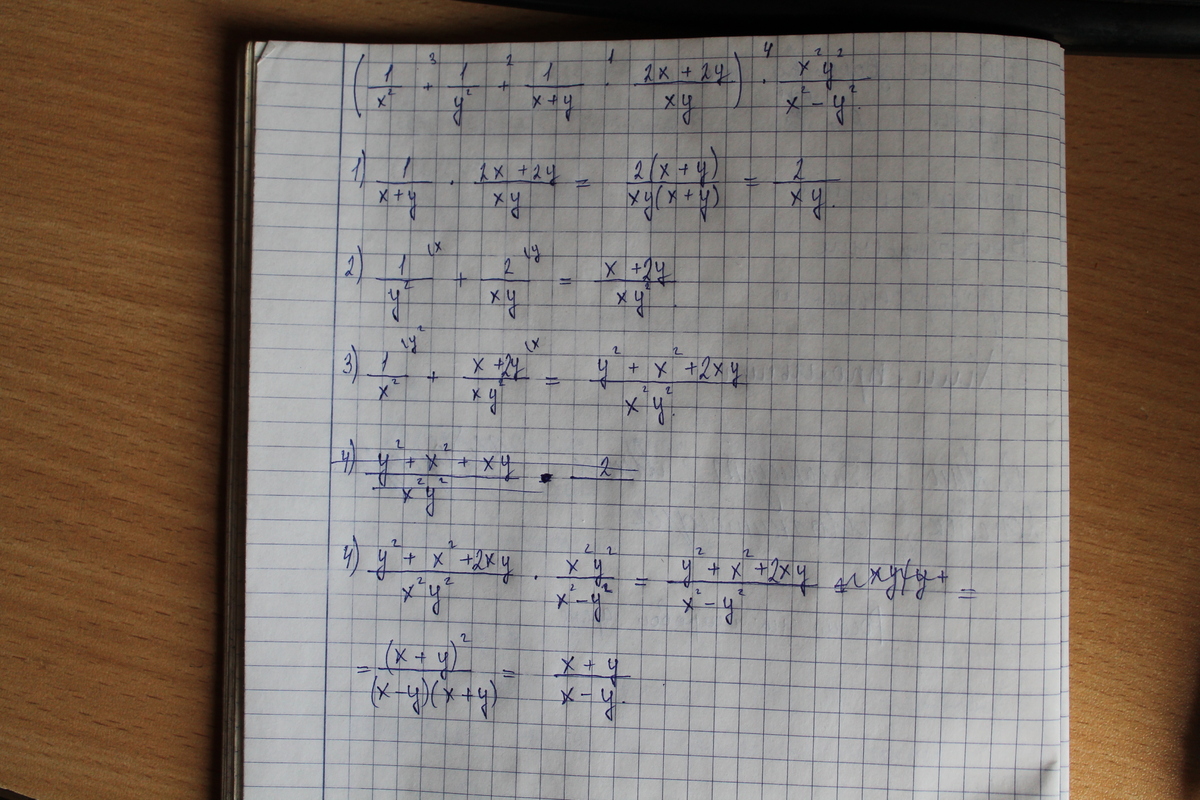 (1/x² +³ 1/y² +² 1/(x+y) ·¹ (2x + 2y)/(xy)) ·⁴ x²y²/(x² - y²).
1) 1/(x+y) · (2x + 2y)/(xy) = 2(x + y)/(xy(x+y)) = 2/(xy).
2) 1/y² (x + 2/(xy) (y = (x + 2y)/(xy²).
3) 1/x² (y² + (x + 2y)/(xy²) (x = (y² + x² + 2xy)/(x²y²).
4) (y² + x² + xy)/(x²y²) · 2
4) (y² + x² + 2xy)/(x²y²) · x²y²/(x² - y²) = (y² + x² + 2xy)/(x² - y²) =
= (x + y)²/((x-y)(x+y)) = (x + y)/(x - y).